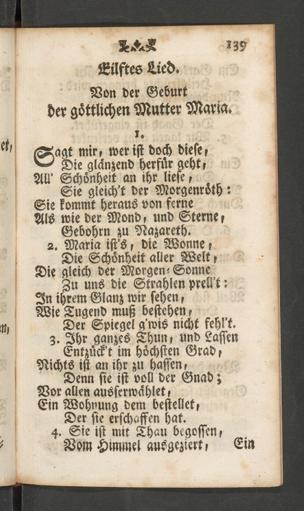 139
Eilftes Lied.
Von der Geburt
der göttlichen Mutter Maria.
1.
Sagt mir, wer ist doch diese,
Die glänzend herfür geht,
All' Schönheit an ihr liese,
Sie gleich't der Morgenröth:
Sie kommt heraus von ferne
Als wie der Mond, und Sterne,
Gebohrn zu Nazareth.
2. Maria ist's, die Wonne,
Die Schönheit aller Welt,
Die gleich der Morgen-Sonne
Zu uns die Strahlen prell't:
In ihrem Glanz wir sehen,
Wie Tugend muß bestehen,
Der Spiegel g'wis nicht fehl't.
3. Ihr ganzes Thun, und Lassen
Entzück't im höchsten Grad,
Nichts ist an ihr zu hassen,
Denn sie ist voll der Gnad;
Vor allen auserwählet,
Ein Wohnung dem bestellet,
Der sie erschaffen hat.
4. Sie ist mit Thau begossen,
Vom Himmel ausgeziert,
Ein